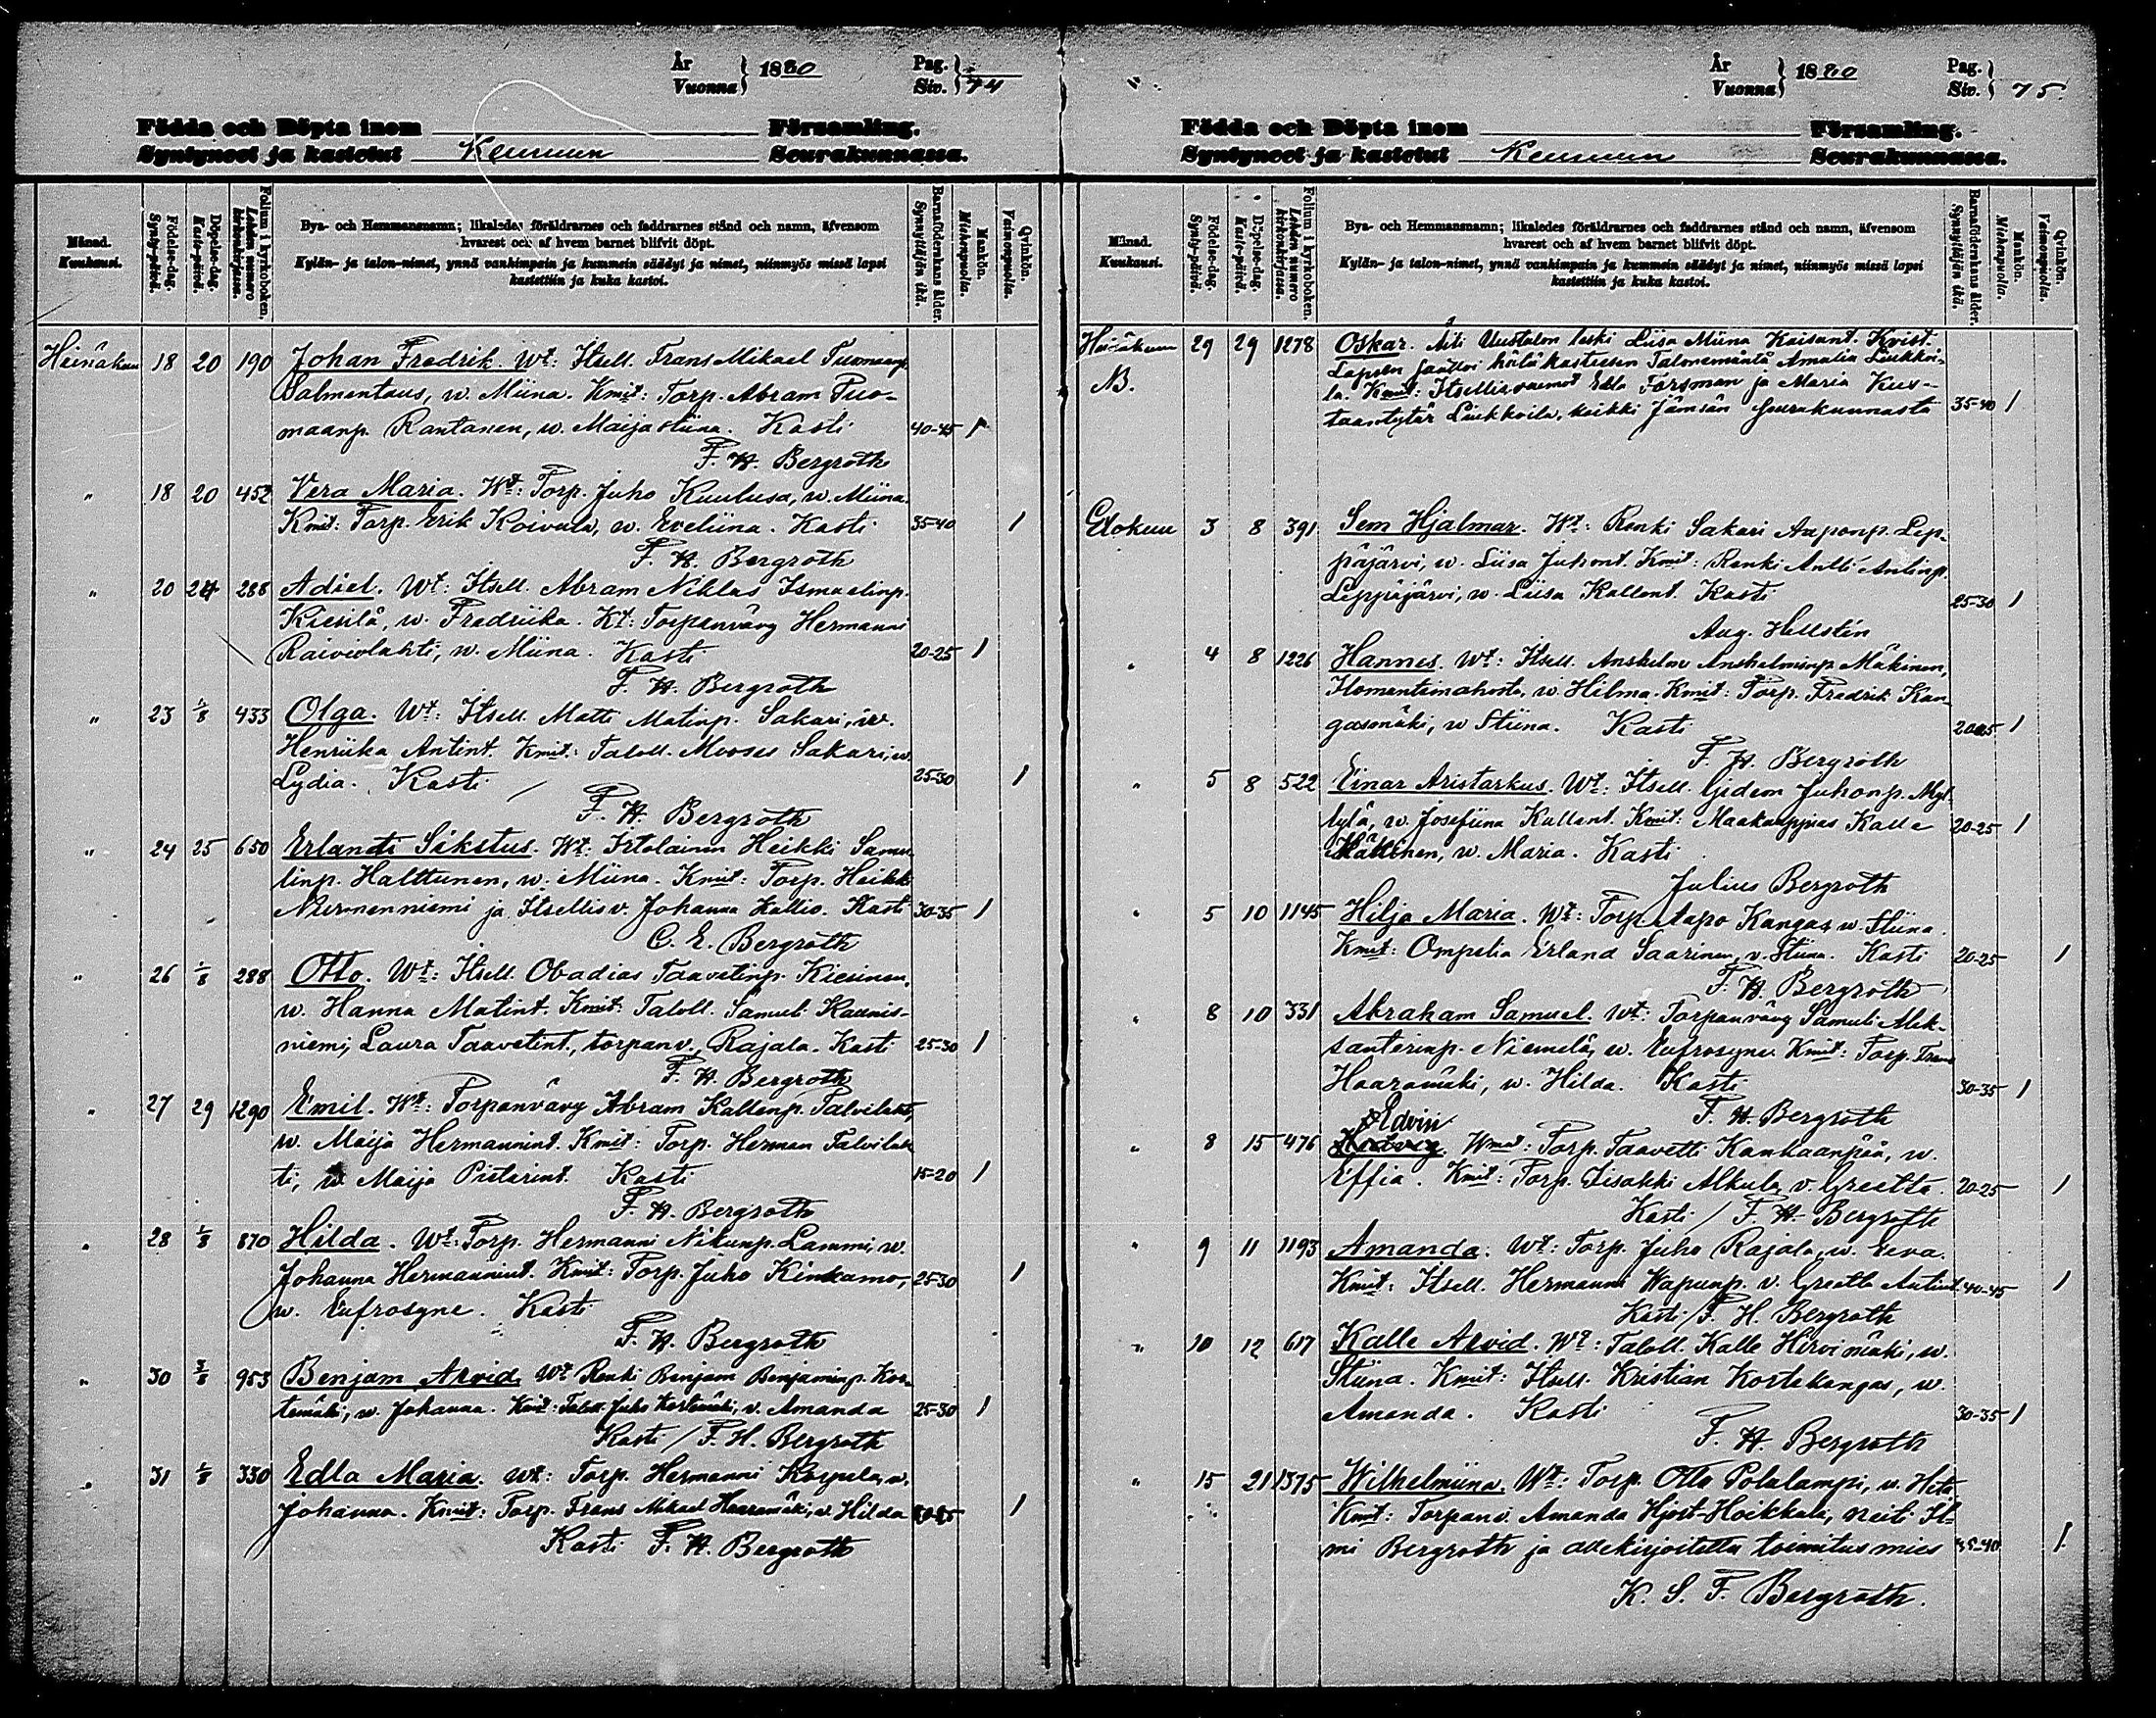 År
Vuonna
1880
Pag.
Siv.
74
Födda och Döpta inom Församling.
Syntyneet ja kastetut Keuruun Seurakunnassa.
Månad.
Kuukausi.
Födelse-dag.
Synty-päivä.
Döpelse-dag.
Kaste-päivä.
Folium i kyrkoboken.
Lehden numero kirkonkirjassa.
Bya- och Hemmansnamn; likaledes föräldrarnes och faddrarnes stånd och namn, äfvensom
hvarest och af hvem barnet blifvit döpt.
Kylän- ja talon-nimet, ynnä vanhimpain ja kummein säädyt ja nimet, niinmyös missä lapsi
kastettiin ja kuka kastoi.
Barnaföderskans ålder.
Synnyttäjän ikä.
Mankön.
Miehenpuolia.
Qvinkön.
Vaimonpuolia.
Heinäkuu 18 20 190 Johan Fredrik. Wt: Itsell. Frans Mikael Tuomaanp.
Salmentaus, w. Miina. Kmit: Torp. Abram Tuo-
maanp. Rantanen, w. Maijastiina. Kasti 40-45 1
F. H. Bergroth
" 18 20 452 Vera Maria. Wt: Torp. Juho Kuulusa, w. Miina.
Kmit: Torp. Erik Koivula, w. Eveliina. Kasti 35-40 1
F. H. Bergroth
" 20 24 288 Adiel. Wt: Itsell. Abram Niklas Ismaelinp.
Kiesilä, w. Fredriika. Kt: Torpanvävy Hermanni
Raiviolahti, w. Miina. Kasti 20-25 1
F. H. Bergroth
" 23 1/8 433 Olga. Wt: Itsell. Matti Matinp. Sakari, w.
Henriika Antint. Kmit: Taloll. Mooses Sakari, w.
Lydia. Kasti 25-30 1
F. H. Bergroth
" 24 25 650 Erlandti Sikstus. Wt. Irtolainen Heikki Samu-
linp. Halttunen, w. Miina. Kmit: Torp. Heikki
Nurmenniemi ja Itsellisv. Johanna Kallio. Kasti 30-35 1
C. E. Bergroth
" 26 1/8 288 Otto. Wt: Itsell. Obadias Taavetinp. Kiesinen,
w. Hanna Matint. Kmit: Taloll. Samuli Kaunis-
niemi, Laura Taavetint., torpanv. Rajala. Kasti 25-30 1
F. H. Bergroth
" 27 29 1290 Emil. Wt: Torpanvävy Abram Kallenp. Talvilahti,
w. Maija Hermannint. Kmit: Torp. Herman Talvilah-
ti, w. Maija Pietarint. Kasti 15-20 1
F. H. Bergroth
" 28 1/8 870 Hilda. Wt: Torp. Hermanni Nikunp. Lammi, w.
Johanna Hermannint. Kmit: Torp. Juho Kinkamo, 25-30 1
w. Eufrosyne. Kasti
F. H. Bergroth
" 30 3/8 953 Benjam Arvid. Wt Renki Benjam Benjaminp. Kor-
temäki, w. Johanna. Kmit: Taloll. Juho Kortemäki, v. Amanda 25-30 1
Kasti / F. H. Bergroth
" 31 1/8 330 Edla Maria. Wt: Torp. Hermanni Korpela, w.
Johanna. Kmit: Torp. Frans Mikael Haaramäki, w. Hilda 1
Kasti F. H. Bergroth
År
Vuonna
1880
Pag.
Siv.
75
Födda och Döpta inom Församling.
Syntyneet ja kastetut Keuruun Seurakunnassa.
Månad.
Kuukausi.
Födelse-dag.
Synty-päivä.
Döpelse-dag.
Kaste-päivä.
Folium i kyrkoboken.
Lehden numero kirkonkirjassa.
Bya- och Hemmansnamn; likaledes föräldrarnes och faddrarnes stånd och namn, äfvensom
hvarest och af hvem barnet blifvit döpt.
Kylän- ja talon-nimet, ynnä vanhimpain ja kummein säädyt ja nimet, niinmyös missä lapsi
kastettiin ja kuka kastoi.
Barnaföderskans ålder.
Synnyttäjän ikä.
Mankön.
Miehenpuolia.
Qvinkön.
Vaimonpuolia.
Heinäkuu 29 29 1278 Oskar. Äiti Uustalon leski Liisa Miina Kaisant. Kvist.
NB. Lapsen saattoi hätäkasteesen Talonemäntä Amalia Liukkoi-
la. Kmit: Itsellisvaimot Edla Forsman ja Maria Kus-
taantytär Liukkoila, kaikki Jämsän seurakunnasta 35-40 1
Elokuu 3 8 391 Sem Hjalmar. Wt: Renki Sakari Aaponp. Lep-
päjärvi, w. Liisa Juhont. Kmit: Renki Antti Antinp.
Leppäjärvi, w. Liisa Kallent. Kasti 25-30 1
Aug. Hellstén
" 4 8 1226 Hannes. Wt: Itsell. Anshelm Anshelminp. Mäkinen,
Homentainahosta, w. Hilma. Kmit: Torp. Fredrik Kan-
gasmäki, w Stiina. Kasti 20-25 1
F. H. Bergroth
" 5 8 522 Einar Aristarkus. Wt: Itsell. Gideon Juhonp. Myl-
lylä, w. Josefiina Kallent. Kmit: Maakauppias Kalle 20-25 1
Hällinen, w. Maria. Kasti
Julius Bergroth
" 5 10 1145 Hilja Maria. Wt: Torp. Aapo Kangas, w. Stiina.
Kmit: Ompelia Erland Saarinen, v. Stiina. Kasti 20-25 1
F. H. Bergroth
" 8 10 331 Abraham Samuel. Wt: Torpanvävy Samuli Alek-
santerinp. Niemelä, w. Eufrosyne. Kmit: Torp. Frans
Haaramäki, w. Hilda. Kasti 30-35 1
F. H. Bergroth
Edvin
" 8 15 476 Wmat: Torp. Taavetti Kankaanpää, w.
Effia. Kmit: Torp. Iisakki Alkula, v. Greetta. 20-25 1
Kasti / F. H. Bergroth
" 9 11 1193 Amanda. Wt: Torp. Juho Rajala, w. Eeva.
Kmit: Itsell. Hermanni Wapunp. v. Greetta Antint. 40-45 1
Kasti / F. H. Bergroth
" 10 12 617 Kalle Arvid. Wt: Taloll. Kalle Hirvimäki, w.
Stiina. Kmit: Itsell. Kristian Kortekangas, w.
Amanda. Kasti 30-35 1
F. H. Bergroth
" 15 21 1375 Wilhelmiina. Wt: Torp. Otto Polalampi, w. Heta.
Kmit: Torpanv. Amanda Hjort-Hoikkala, neiti Il-
mi Bergroth ja allekirjoitettu toimitusmies 35-40 1
K. S. F. Bergroth.